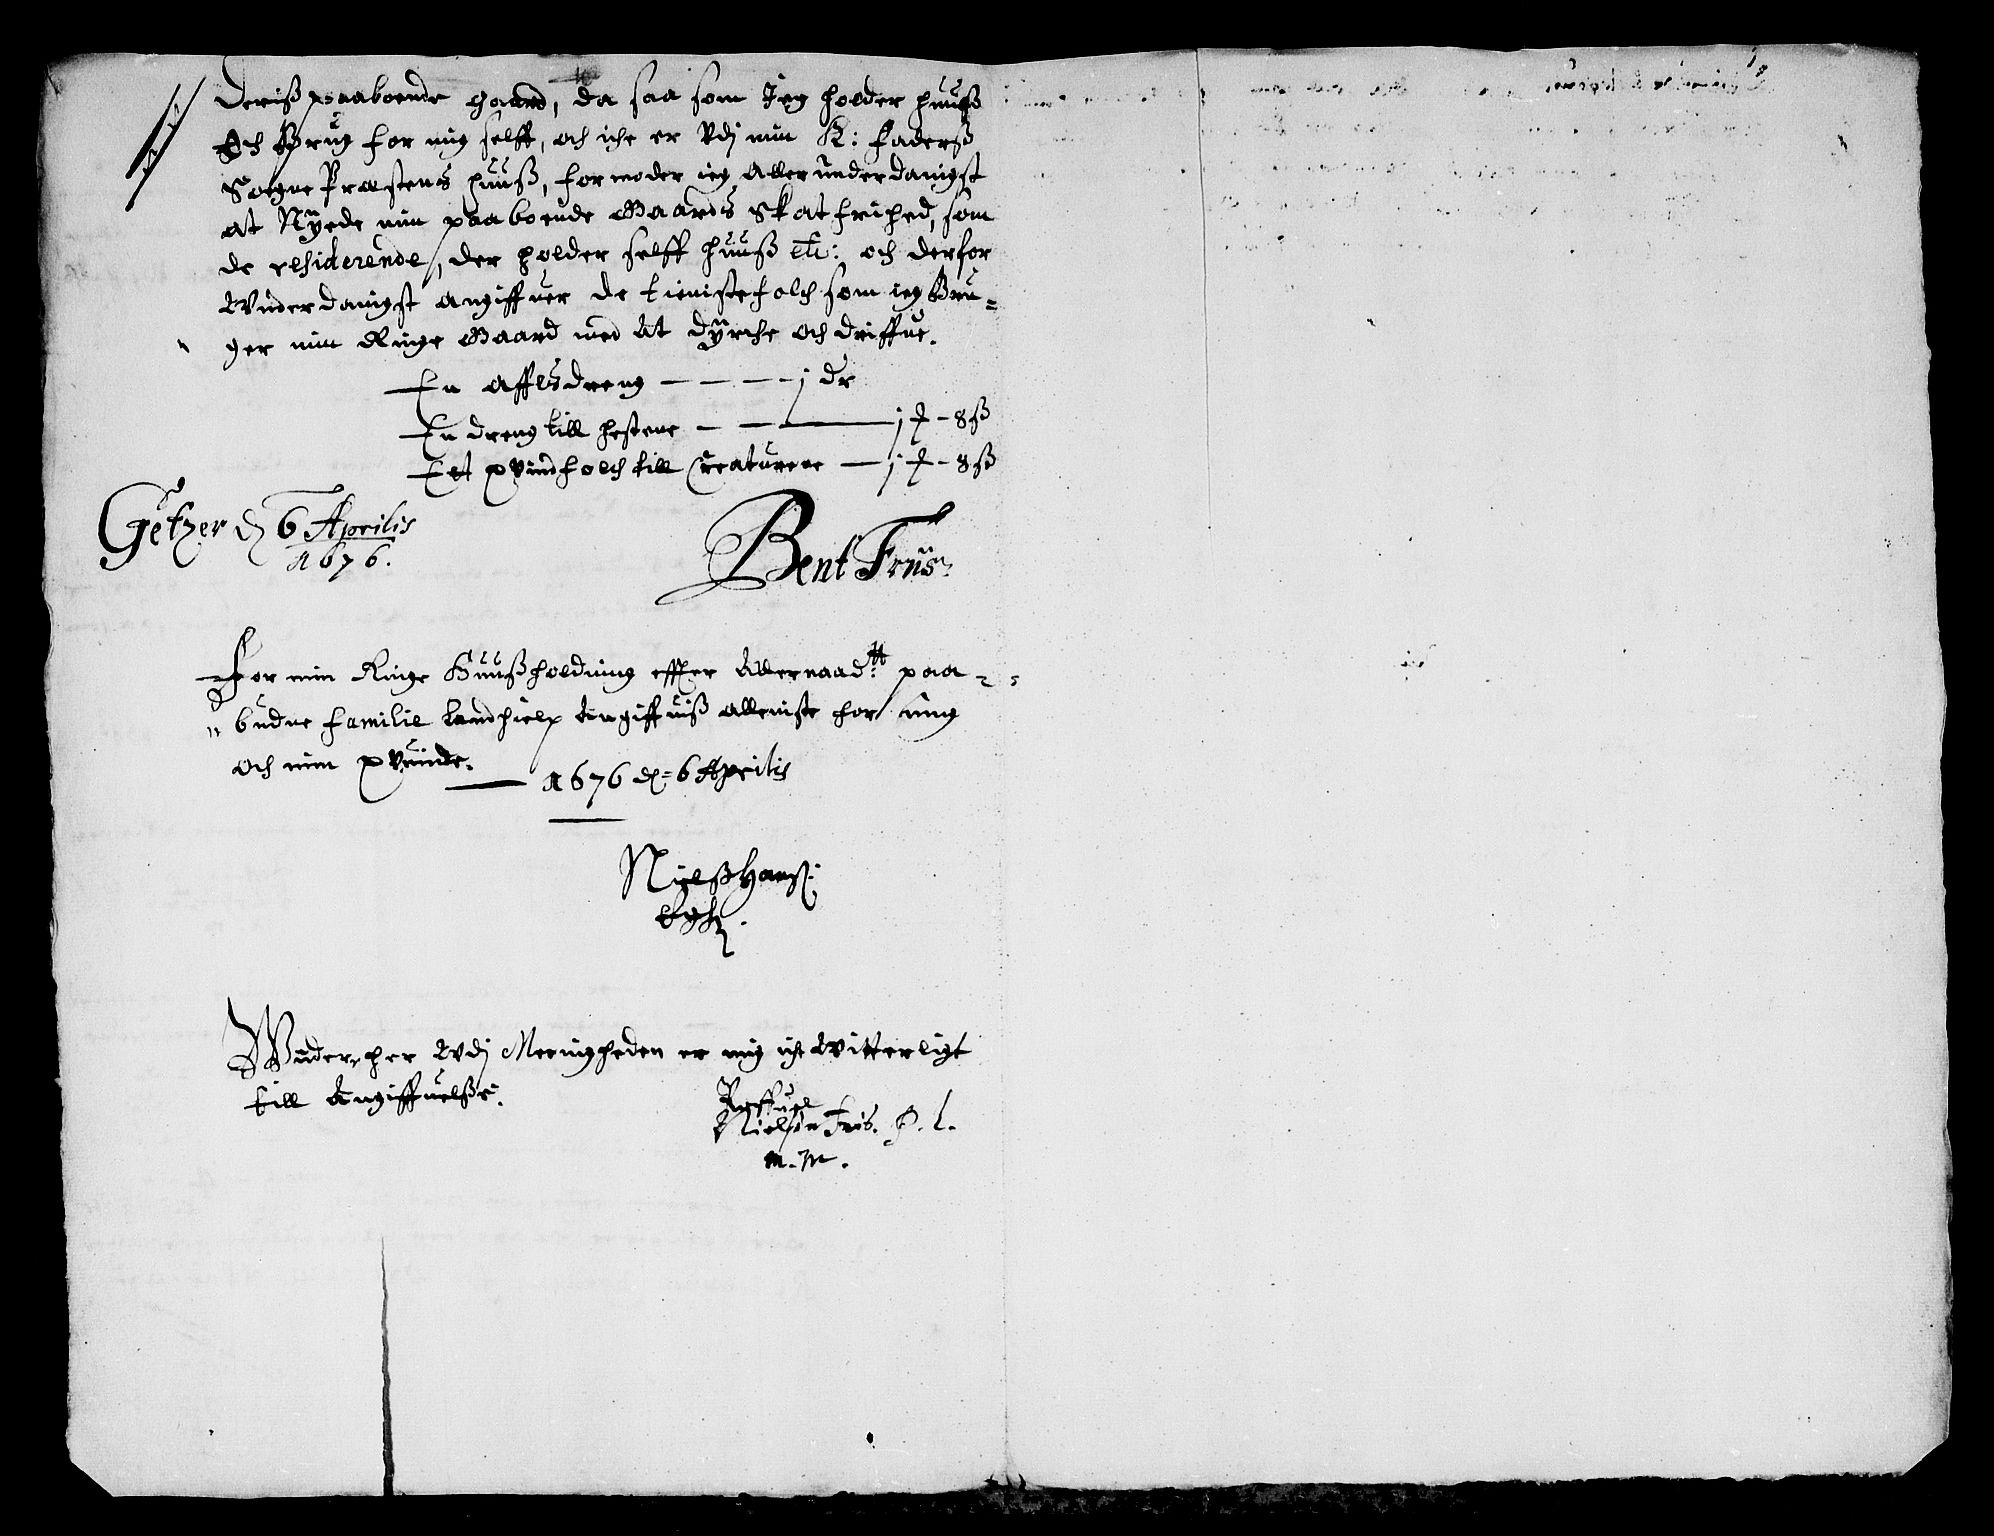 Deriß paaboende gaard, da saa som Jeg holder huuß
Och Brug for mig selff, och iche er Vdj min K: Faderß
Sogne Præstens huuß, formoder ieg Allerunderdanigst
at Nÿede min paaboende Gaards Skatfrihed, som
de residerende, der holder selff huuß etc: och derfor
Vnderdanigst angiffuer de tienistefolch som ieg Bru-
ger min Ringe Gaard med At dÿrche och driffue.
En Affelsdreng — — — — 1 dr
En dreng till hestene — — — 1 ƒ - 8 ß
Ett qvindfolch till Creaturene — 1 ƒ - 8 ß
Getzer d 6 Aprilis
1676.
Bent Friis
For min Ringe Huußholdning effter Allernaadtt: paa-
budne familie Landhielp Angiffuiß alleniste for mig
och min qvinde.
— 1676 d= 6 Aprilis
Nielß Hanß:
Egh
Widere her Vdj Meenigheden er mig iche Witterligt
till Angiffuelße.
Nielsøn Friis. P. L.
m. m.